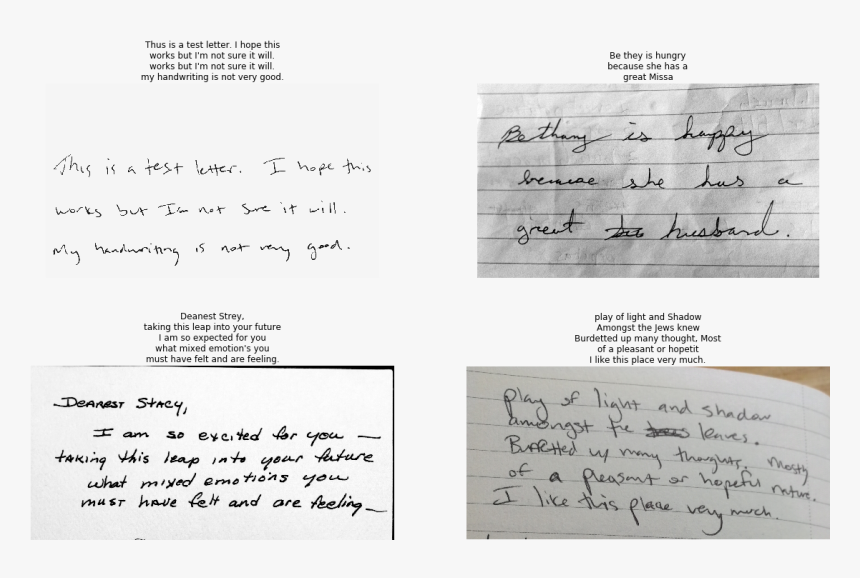 Thus is a test letter. I hope this
works but I'm not sure it will.
works but I'm not sure it will.
my handwriting is not very good.
This is a test letter. I hope this
works but I'm not sure it will.
My handwriting is not very good.
Be they is hungry
because she has a
great Missa
Bethany is happy
because she has a
great husband.
Deanest Strey,
taking this leap into your future
I am so expected for you
what mixed emotion's you
must have felt and are feeling.
Dearest Stacy,
I am so excited for you —
taking this leap into your future
what mixed emotions you
must have felt and are feeling_
play of light and Shadow
Amongst the Jews knew
Burdetted up many thought, Most
of a pleasant or hopetit
I like this place very much.
play of light and shadow
amongst the leaves.
Buffetted up many thoughts. Mostly
of a pleasant or hopeful nature.
I like this place very much.